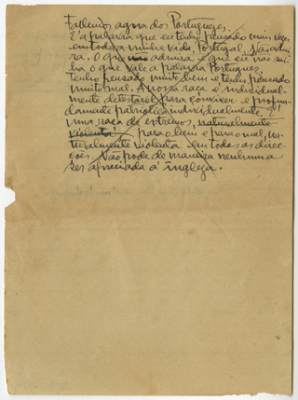 Fallemos agora dos Portugueses.
É a palavra que eu tenho pensado mais vezes
em toda a minha vida, Portugal,
O que não admira é que eu não sai-
ba o que vale a palavra Portuguez.
Tenho pensado muito bem e tenho pensado
muito mal. A nossa raça é individual-
mente detestavel para conviver e profun-
damente patriotica individualmente. É
uma raça de extremos, naturalmente
violenta para o bem e para o mal, na-
turalmente violenta em todas as direc-
ções. Não pode de maneira nenhuma
ser apreciada á ingleza.